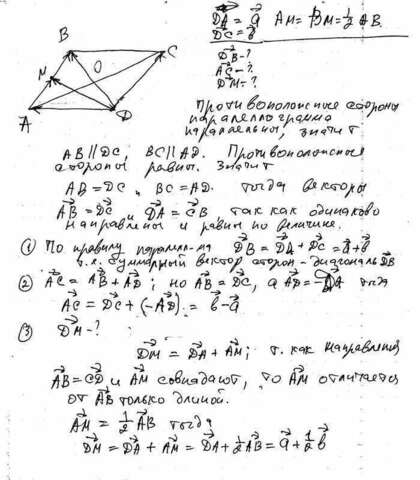 B C
M O
A D
DA = a AM = BM = 1/2 AB.
DC = b
DB - ?
AC - ?
DM - ?
Противоположные стороны
параллелограмма
параллельны, значит
AB || DC, BC || AD. Противоположные
стороны равны. Значит
AB = DC, BC = AD. тогда векторы
AB = DC и DA = CB так как одинаково
направлены и равны по величине.
① По правилу паралл-ма DB = DA + DC = a + b
т.к. суммарный вектор сторон - диагональ DB
② AC = AB + AD; но AB = DC, а AD = -DA тогда
AC = DC + (-AD) = b - a
③ DM - ?
DM = DA + AM; т. как направления
AB = CD и AM совпадают, то AM отличается
от AB только длиной.
AM = 1/2 AB тогда
DM = DA + AM = DA + 1/2 AB = a + 1/2 b